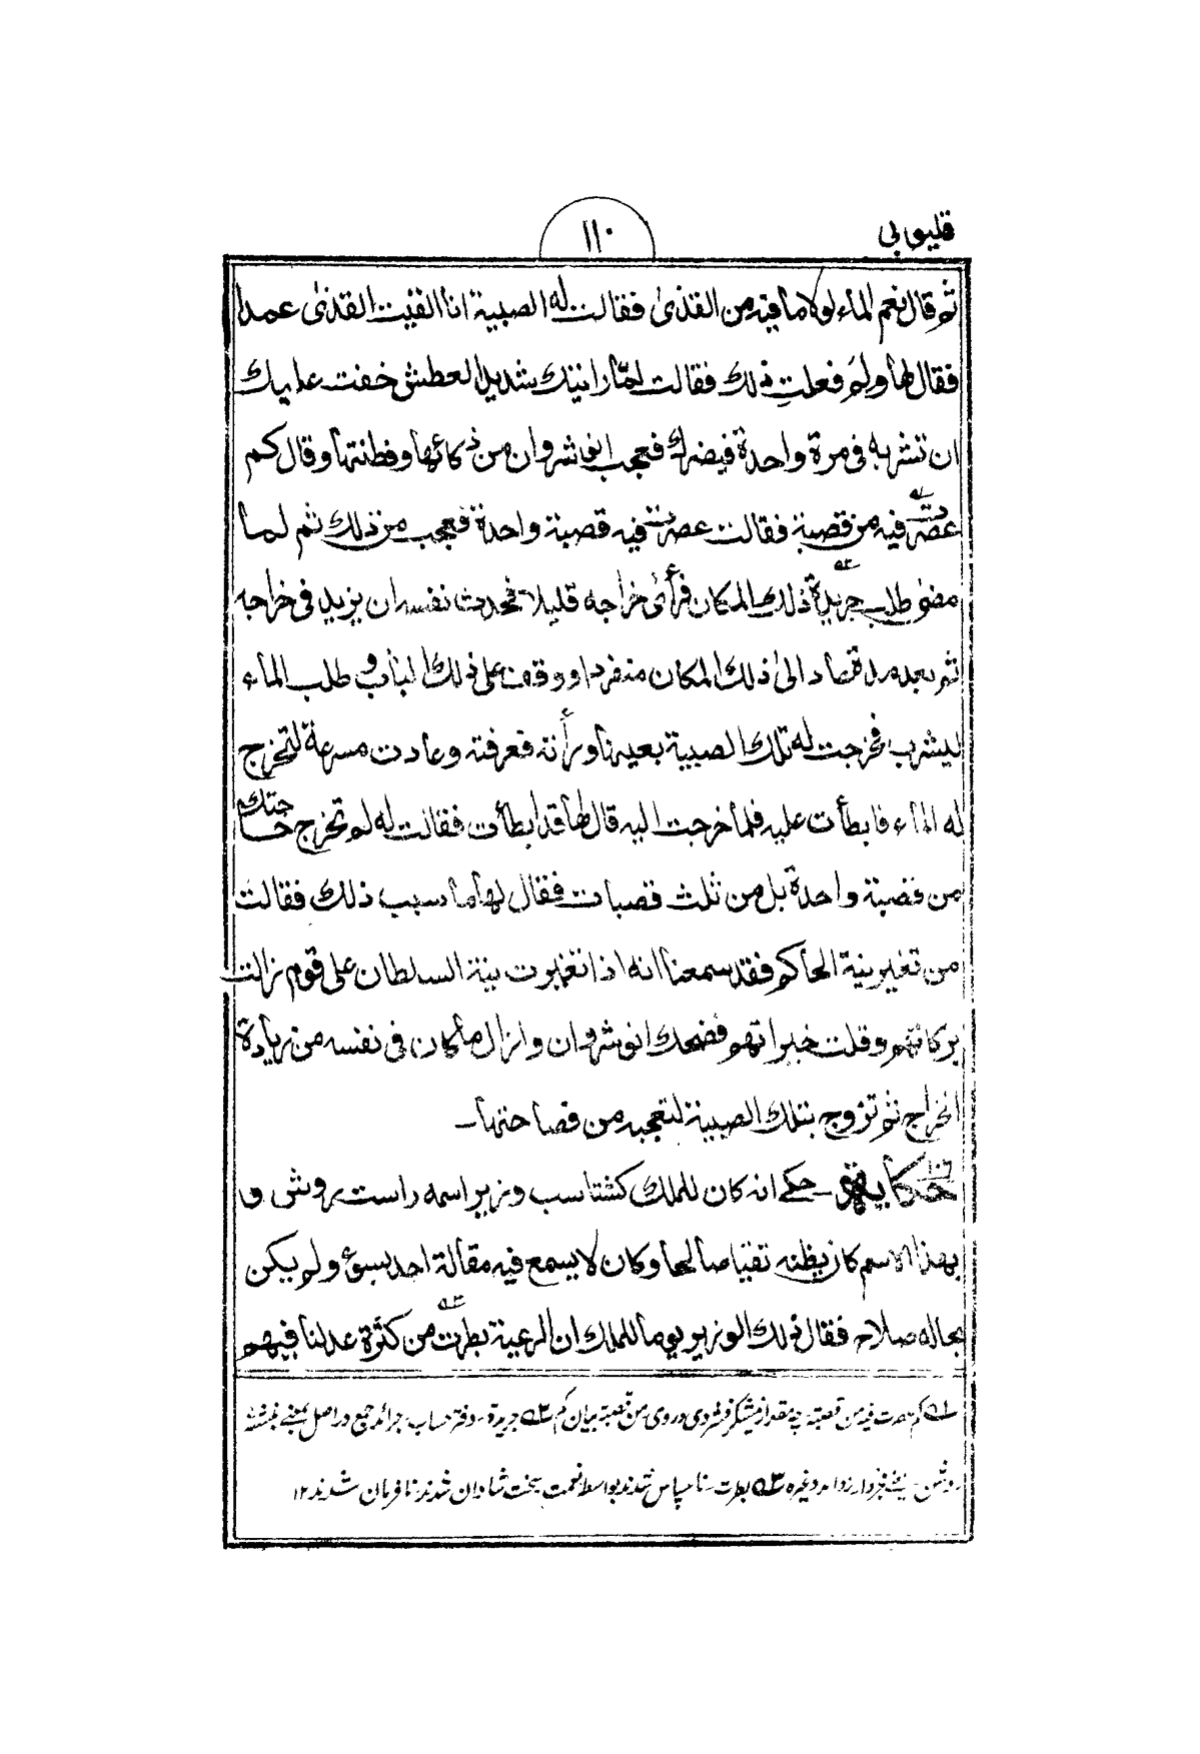 قليوبى
١١٠
ثم قال نعم الماء لولا ما فيه من القذىٰ فقالت له الصبية انا القيت القذىٰ عمدا
فقال لها ولم فعلتِ ذلك فقالت لمّا رائيتك شديد العطش خفت عليك
ان تشربه فى مرة واحدة فيضرك فعجب انوشروان من ذكائها وفطنتها وقال كم
عصرت فيه من قصبة فقالت عصرت فيه قصبة واحدة فعجب من ذلك ثم لما
مضىٰ طلب جريدة ذلك المكان فرأىٰ خراجه قليلا فحدث نفسه ان يزيد فى خراجه
ثم بعد مدة عاد الىٰ ذلك المكان منفردا ووقف علىٰ ذلك الباب و طلب الماء
ليشرب فخرجت له تلك الصبية بعينها ورأته فعرفته وعادت مسرعة لتخرج
له الماء فابطأت عليه فلما خرجت اليه قال لها قد ابطأت فقالت له لم تخرج حاجتك
من قصبة واحدة بل من ثلث قصبات فقال لها ما سبب ذلك فقالت
من تغير نية الحاكم فقد سمعنا انه اذا تغيرت نية السلطان على قوم زالت
بركاتهم وقلت خيراتهم فضحك انوشروان وازال ما كان فى نفسه من زيادة
الخراج ثم تزوج بتلك الصبية لتعجبه من فصاحتها ــ
حكاية ــ حكے انه كان للملك كشتاسب وزير اسمه راست روش و
بهذا الاسم كان يظنه تقيا صالحا وكان لا يسمع فيه مقالة احد بسوء ولم يكن
بحاله صلاح فقال ذلك الوزير يوما للملك ان الرعية بطرت من كثرة عدلنا فيهم
له كم عصرت فيه من قصبة چه مقدار نيشكر فشردى دروى من قصبة بيان كم ٢ه جريدة ـ دفتر حساب، جرائد جمع دراصل بمعنے
٣ه بطرت ـ ناسپاس شدند بواسطه نعمت بسخت شادان شدند نافرمان شدند ١٢